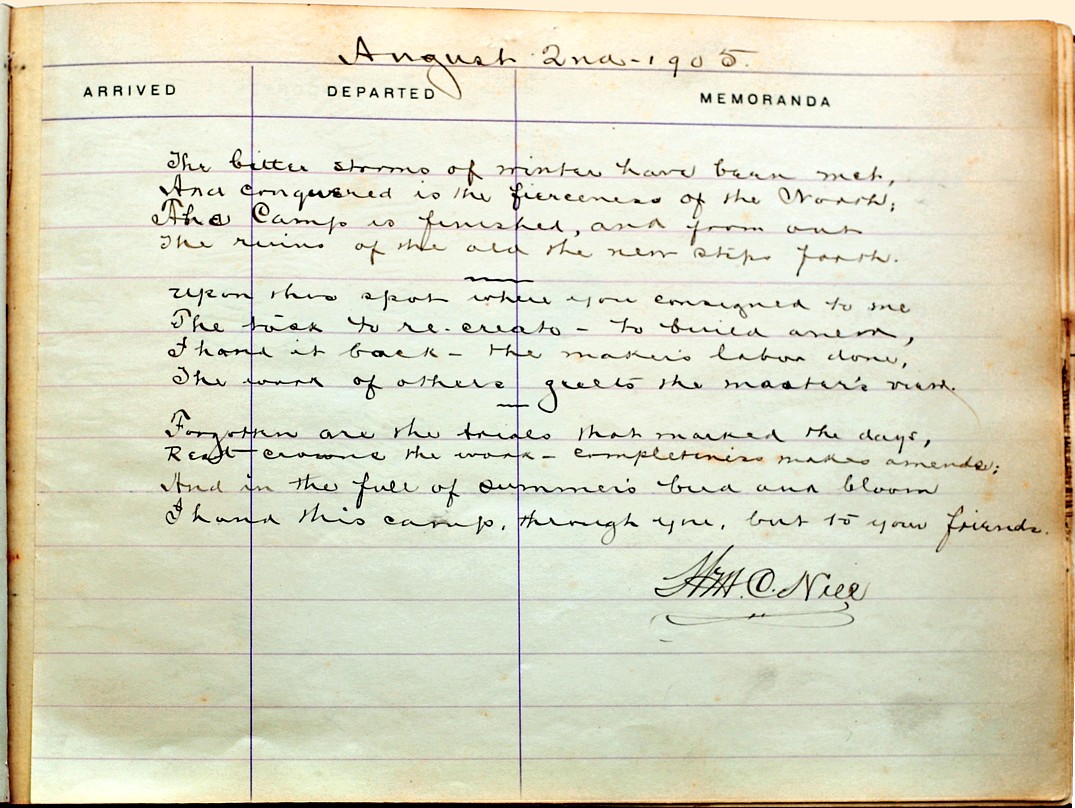 August 2nd - 1905.
ARRIVED DEPARTED MEMORANDA
The bitter storms of winter have been met,
And conquered is the fierceness of the North;
The Camp is finished, and from out
The ruins of the old the new steps forth.
Upon this spot where you consigned to me
The task to re-create - to build anew,
I hand it back - the maker's labor done,
The work of others greets the master's view.
Forgotten are the trials that marked the days,
Rest crowns the work - completeness makes amends;
And in the full of summer's bud and bloom
I hand this camp, through you, but to your friends.
Wm. C.